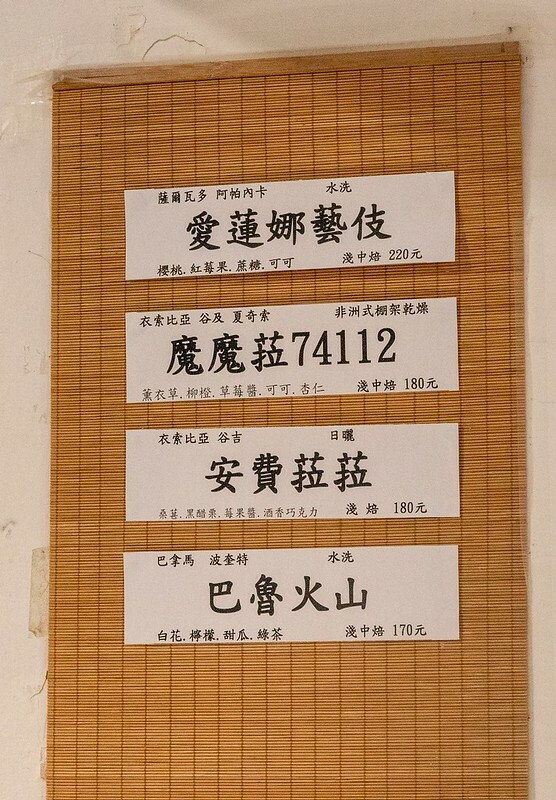 薩爾瓦多 阿帕內卡 水洗
愛蓮娜藝伎
櫻桃.紅莓果.蔗糖.可可 淺中焙 220元
衣索比亞 谷及 夏奇索 非洲式棚架乾燥
魔魔菈74112
薰衣草.柳橙.草莓醬.可可.杏仁 淺中焙 180元
衣索比亞 谷吉 日曬
安費菈菈
桑葚.黑醋栗.莓果醬.酒香巧克力 淺 焙 180元
巴拿馬 波奎特 水洗
巴魯火山
白花.檸檬.甜瓜.綠茶 淺中焙 170元